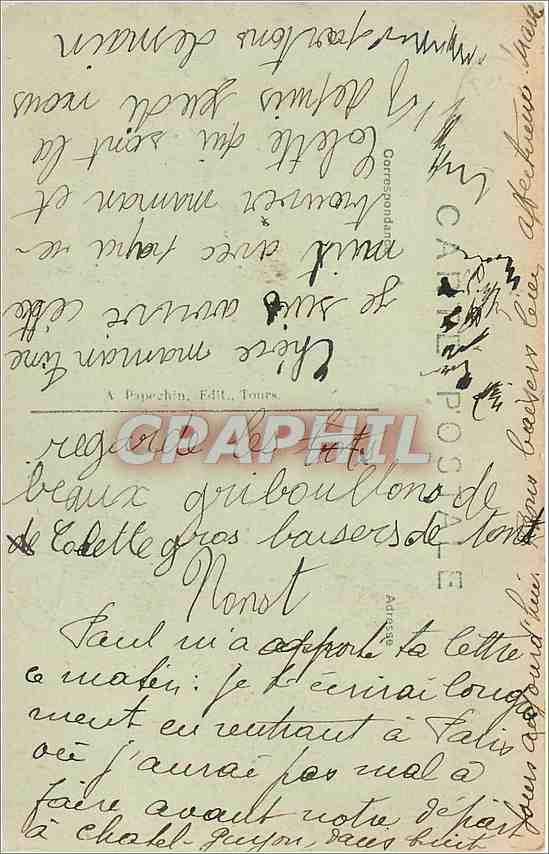 Chère maman Tine
je suis arrivée cette
nuit avec papa re-
trouver maman et
Colette qui sont là
depuis jeudi nous
partons demain
regarde les tots
beaux gribouillons de
de Colette gros baisers de tont
Nonot
Paul m'a apporté ta lettre
ce matin : je t'écrirai longue
ment en rentrant à Paris
où j'aurai pas mal à
faire avant notre départ
à Chatel-Guyon, dans huit
jours aujourd'hui. Bons baisers bien affectueux
CARTE POSTALE
Correspondance
Adresse
A. Papeghin, Edit., Tours.
CPAPHIL